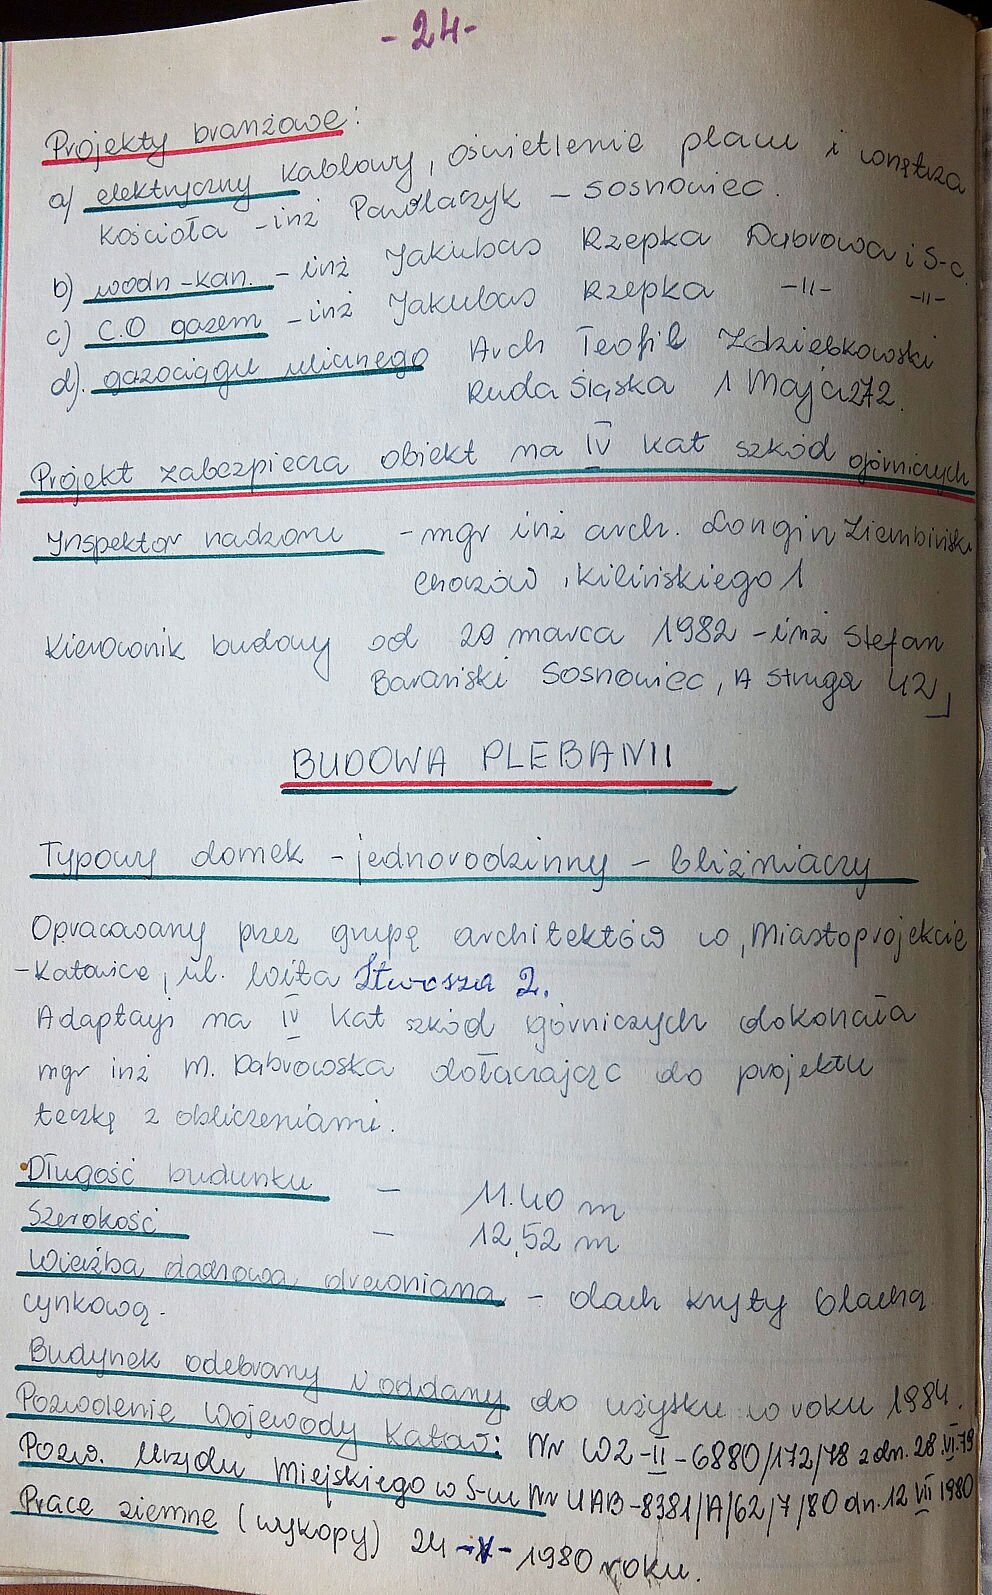 -24-
Projekty branżowe:
a) elektryczny kablowy, oświetlenie placu i wnętrza
Kościoła - inż Pawlaczyk - Sosnowiec.
b) wodn-kan. - inż Jakubas Rzepka Dąbrowa i S-c.
c) C.O gazem - inż Jakubas Rzepka -II- -II-
d). gazociągu ulicznego Arch Teofil Zdziebkowski
Ruda Śląska 1 Maja 272.
Projekt zabezpiecza obiekt na IV kat szkód górniczych
Inspektor nadzoru - mgr inż arch. Longin Ziembiński
Chorzów, Kilińskiego 1
Kierownik budowy od 20 marca 1982 - inż Stefan
Barański Sosnowiec, A Struga 42
BUDOWA PLEBANII
Typowy domek - jednorodzinny - bliźniaczy
Opracowany przez grupę architektów w "Miastoprojekcie
- Katowice, ul. Wita Stwosza 2.
Adaptacji na IV kat szkód górniczych dokonała
mgr inż M. Dąbrowska dołączając do projektu
teczkę z obliczeniami.
Długość budynku - 11.40 m
Szerokość - 12,52 m
Więźba dachowa drewniana - dach kryty blachą
cynkową.
Budynek odebrany i oddany do użytku w roku 1984.
Pozwolenie Wojewody Katow: Nr WZ-II-6880/172/78 z dn. 28.VI.79
Pozw. Urzędu Miejskiego w S-cu Nr UAB-8381/A/62/7/80 dn. 12 VII 1980
Prace ziemne (wykopy) 24 -V- 1980 roku.